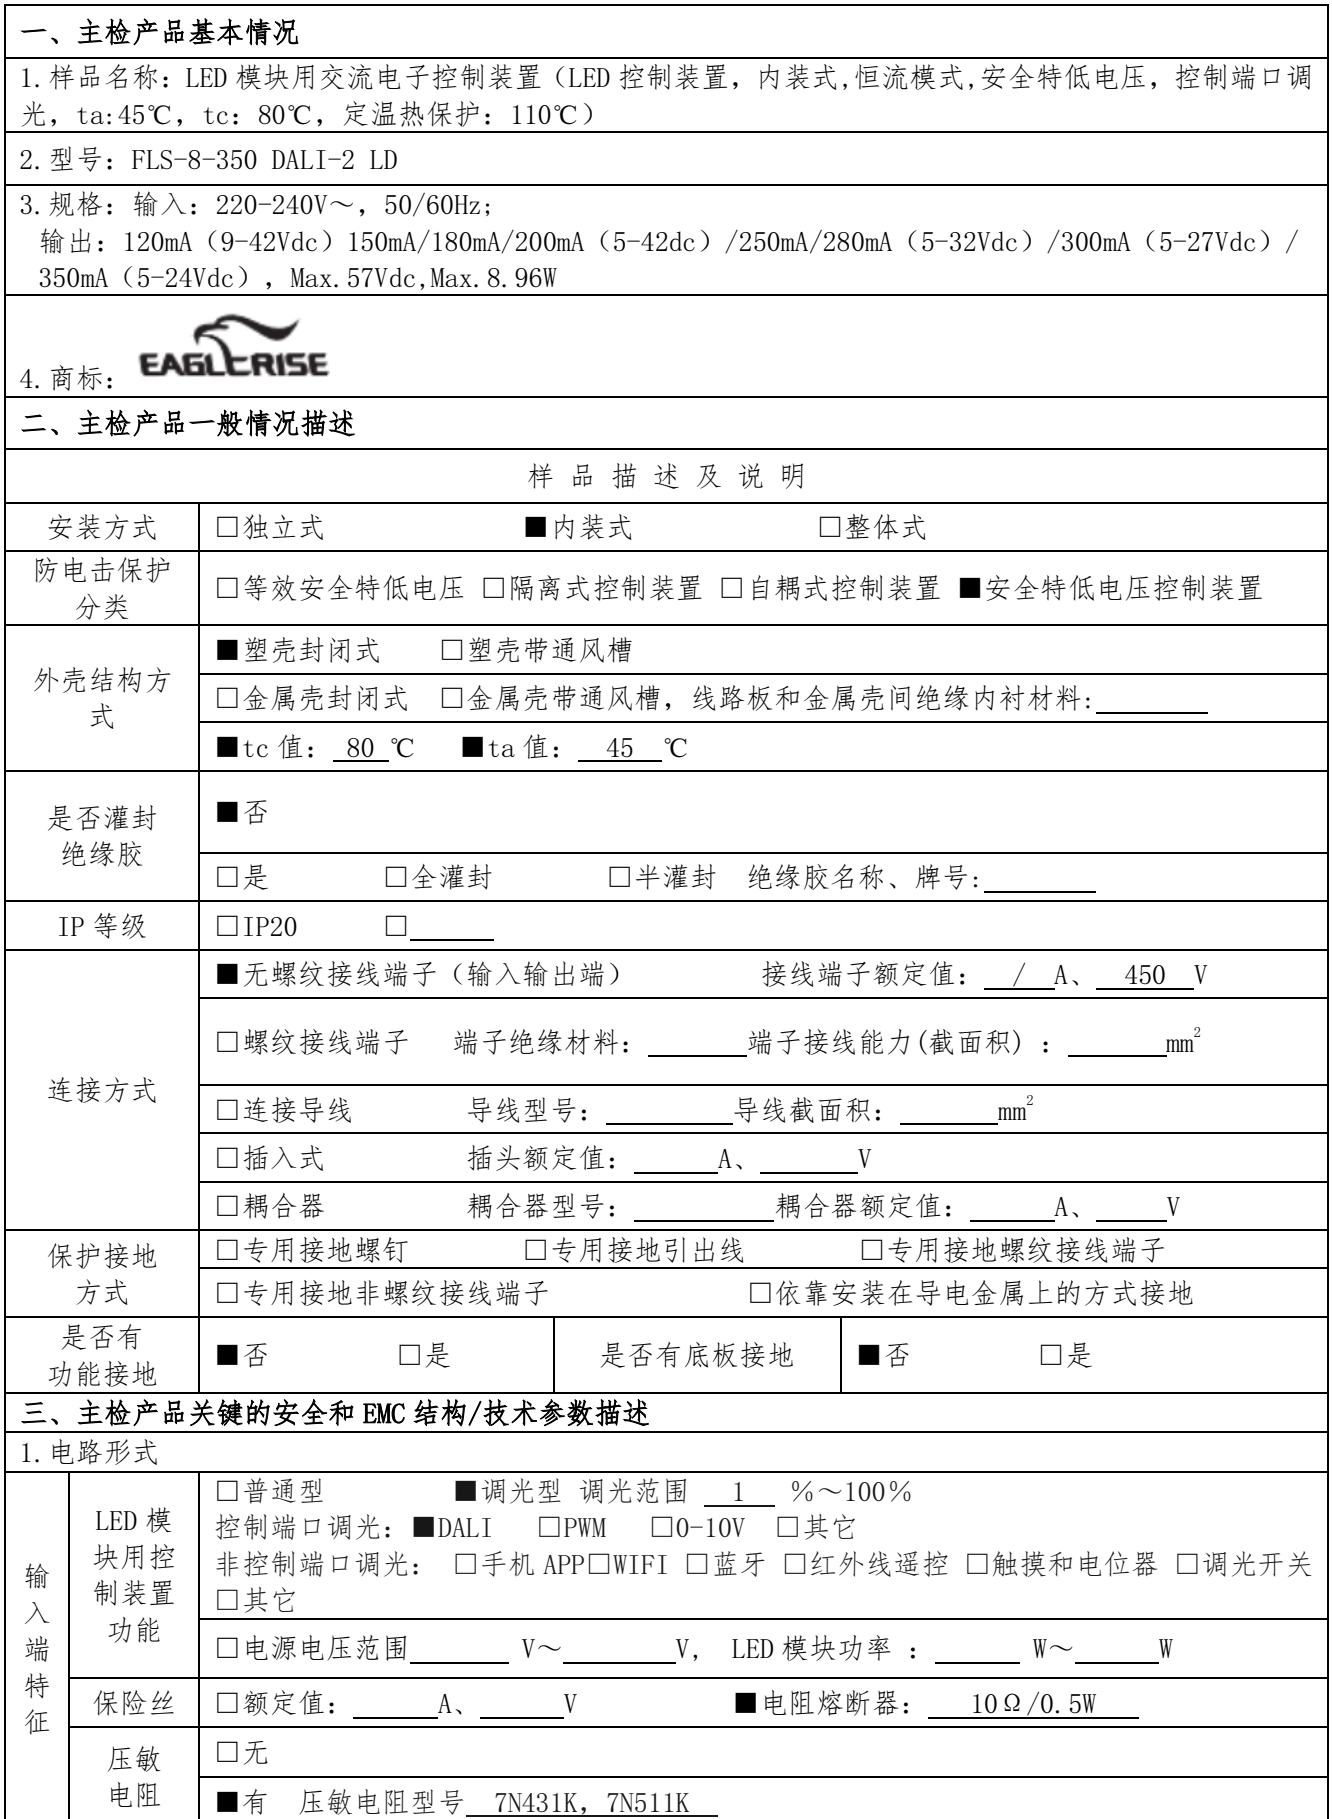 一、主检产品基本情况
1.样品名称：LED 模块用交流电子控制装置（LED 控制装置，内装式,恒流模式,安全特低电压，控制端口调
光，ta:45℃，tc：80℃，定温热保护：110℃）
2.型号：FLS-8-350 DALI-2 LD
3.规格：输入：220-240V～，50/60Hz;
输出：120mA（9-42Vdc）150mA/180mA/200mA（5-42dc）/250mA/280mA（5-32Vdc）/300mA（5-27Vdc）/
350mA（5-24Vdc），Max.57Vdc,Max.8.96W
EAGLERISE
4.商标：
二、主检产品一般情况描述
样 品 描 述 及 说 明
安装方式 □独立式 ■内装式 □整体式
防电击保护
分类
□等效安全特低电压 □隔离式控制装置 □自耦式控制装置 ■安全特低电压控制装置
外壳结构方
式
■塑壳封闭式 □塑壳带通风槽
□金属壳封闭式 □金属壳带通风槽，线路板和金属壳间绝缘内衬材料:________
■tc 值：80 ℃ ■ta 值：45 ℃
是否灌封
绝缘胶
■否
□是 □全灌封 □半灌封 绝缘胶名称、牌号:________
IP 等级 □IP20 □______
■无螺纹接线端子（输入输出端） 接线端子额定值： / A、 450 V
□螺纹接线端子 端子绝缘材料：_______端子接线能力(截面积) ：_______mm²
连接方式
□连接导线 导线型号：_________导线截面积：_______mm²
□插入式 插头额定值：______A、_______V
□耦合器 耦合器型号：__________耦合器额定值：______A、_____V
保护接地
方式
□专用接地螺钉 □专用接地引出线 □专用接地螺纹接线端子
□专用接地非螺纹接线端子 □依靠安装在导电金属上的方式接地
是否有
功能接地
■否 □是 是否有底板接地 ■否 □是
三、主检产品关键的安全和 EMC 结构/技术参数描述
1.电路形式
输
入
端
特
征
LED 模
块用控
制装置
功能
□普通型 ■调光型 调光范围 1 %～100%
控制端口调光：■DALI □PWM □0-10V □其它
非控制端口调光： □手机 APP□WIFI □蓝牙 □红外线遥控 □触摸和电位器 □调光开关
□其它
□电源电压范围_______ V～________V, LED 模块功率 ：______ W～______W
保险丝 □额定值：______A、______V ■电阻熔断器： 10Ω/0.5W
压敏
电阻
□无
■有 压敏电阻型号 7N431K，7N511K